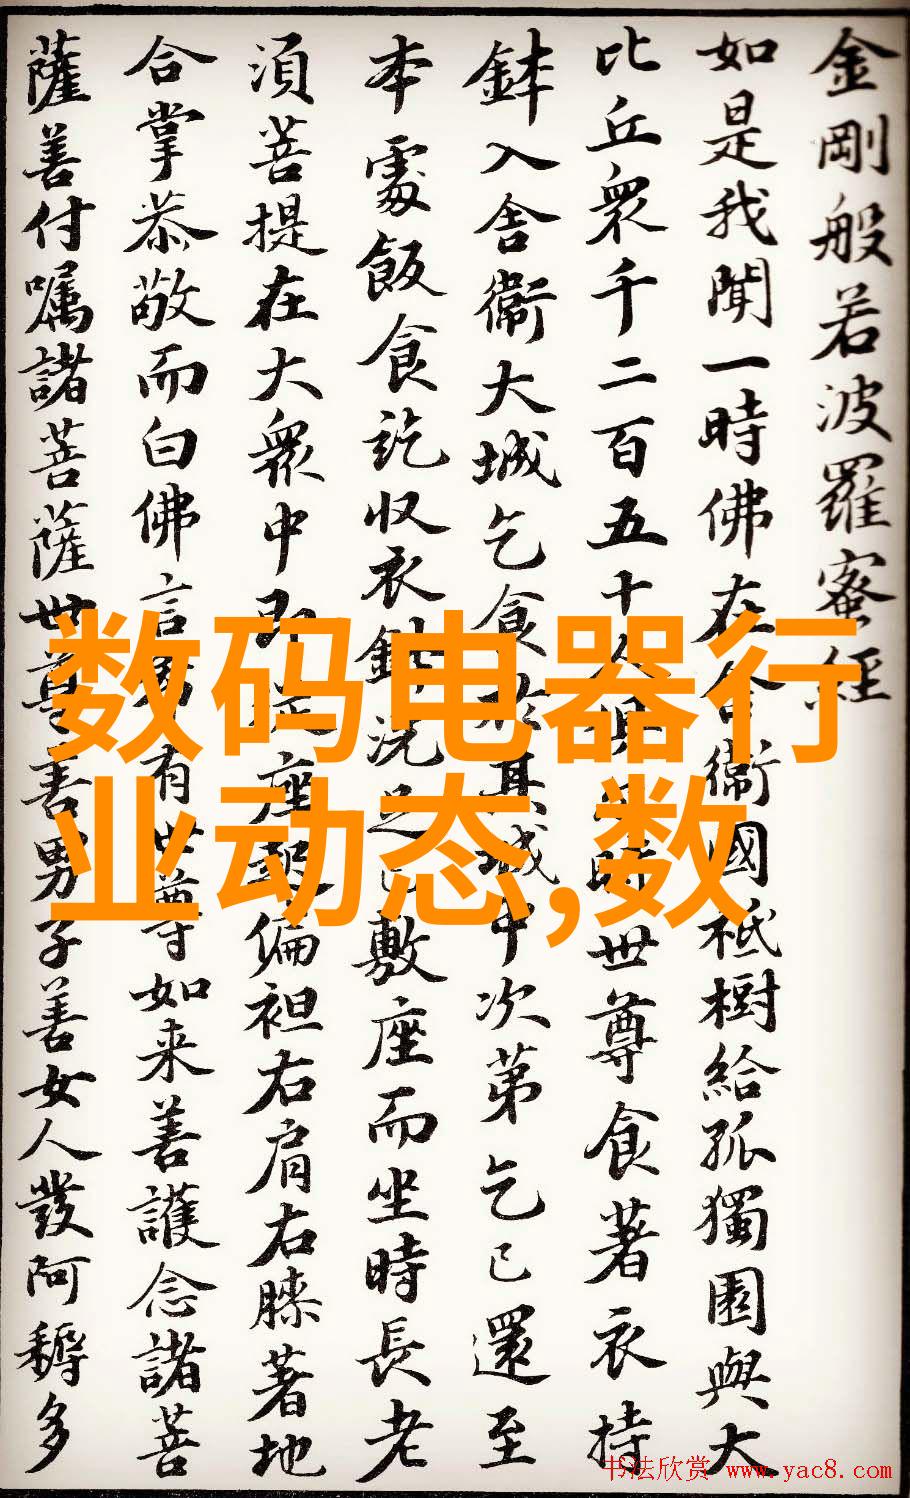 金剛般若波羅蜜經
如是我聞一時佛在舍衞國祇樹給孤獨園與大
比丘衆千二百五十人俱尒時世尊食著衣持
鉢入舍衞大城乞食於其城中次第乞已還至
本處飯食訖収衣鉢洗足已敷座而坐時長老
湏菩提在大衆中即從座起偏袒右肩右膝著地
合掌恭敬而白佛言希有世尊如来善護念諸菩
薩善付嘱諸菩薩世尊善男子善女人發阿耨多
数码电器行
业动态,数
书法欣赏 www.yac8.com